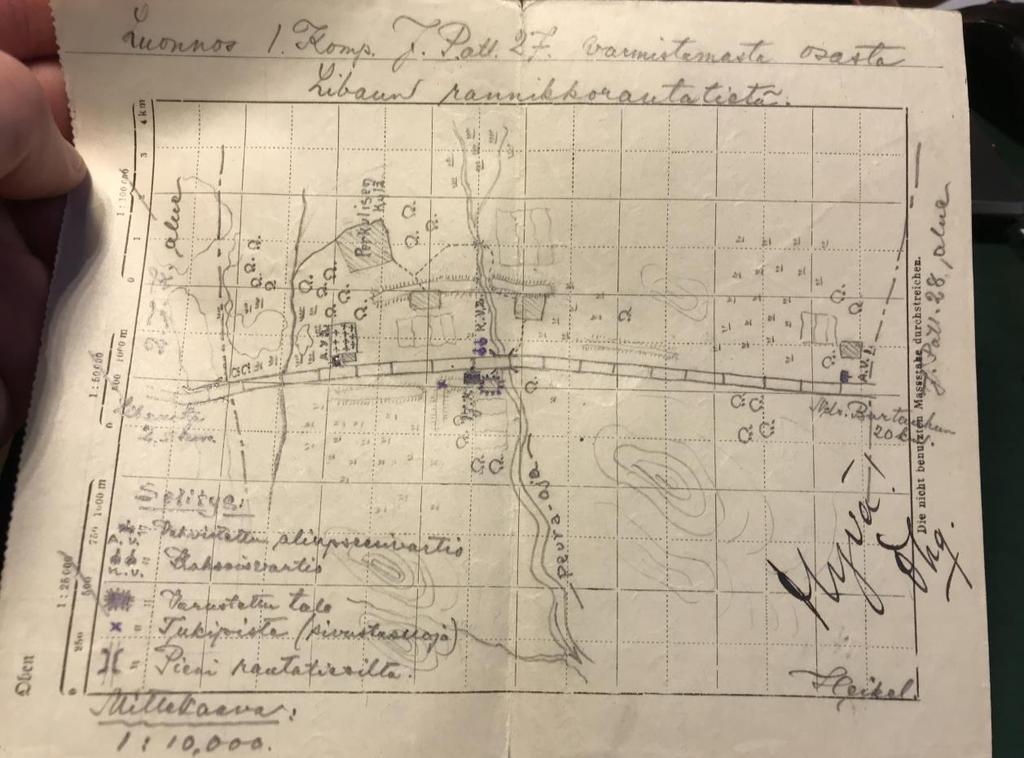 Luonnos 1. Komp. J. Patl. 27. varmistamasta osasta
Libaun rannikkorautatietä.
4 km
3
1
0
1:100 000
1:50 000
1000 m
500
0
1:25 000
1000 m
750
500
250
0
Oben
J. Patl. 28. alue
Die nicht benutzten Massstabe durchstreichen.
Perkulisen
Kylä
A.V.
K.V.
A.V.
Peura-oja
20 km.
Selitys:
P. " Vahvistettu aliupseerivartio
K.V. " Kaksoisvartio
" Varustettu talo
x " Tukipiste (sivustasuoja)
" Pieni rautatiesilta.
Mittakaava:
1 : 10,000.
Hyvä!
Heikel.